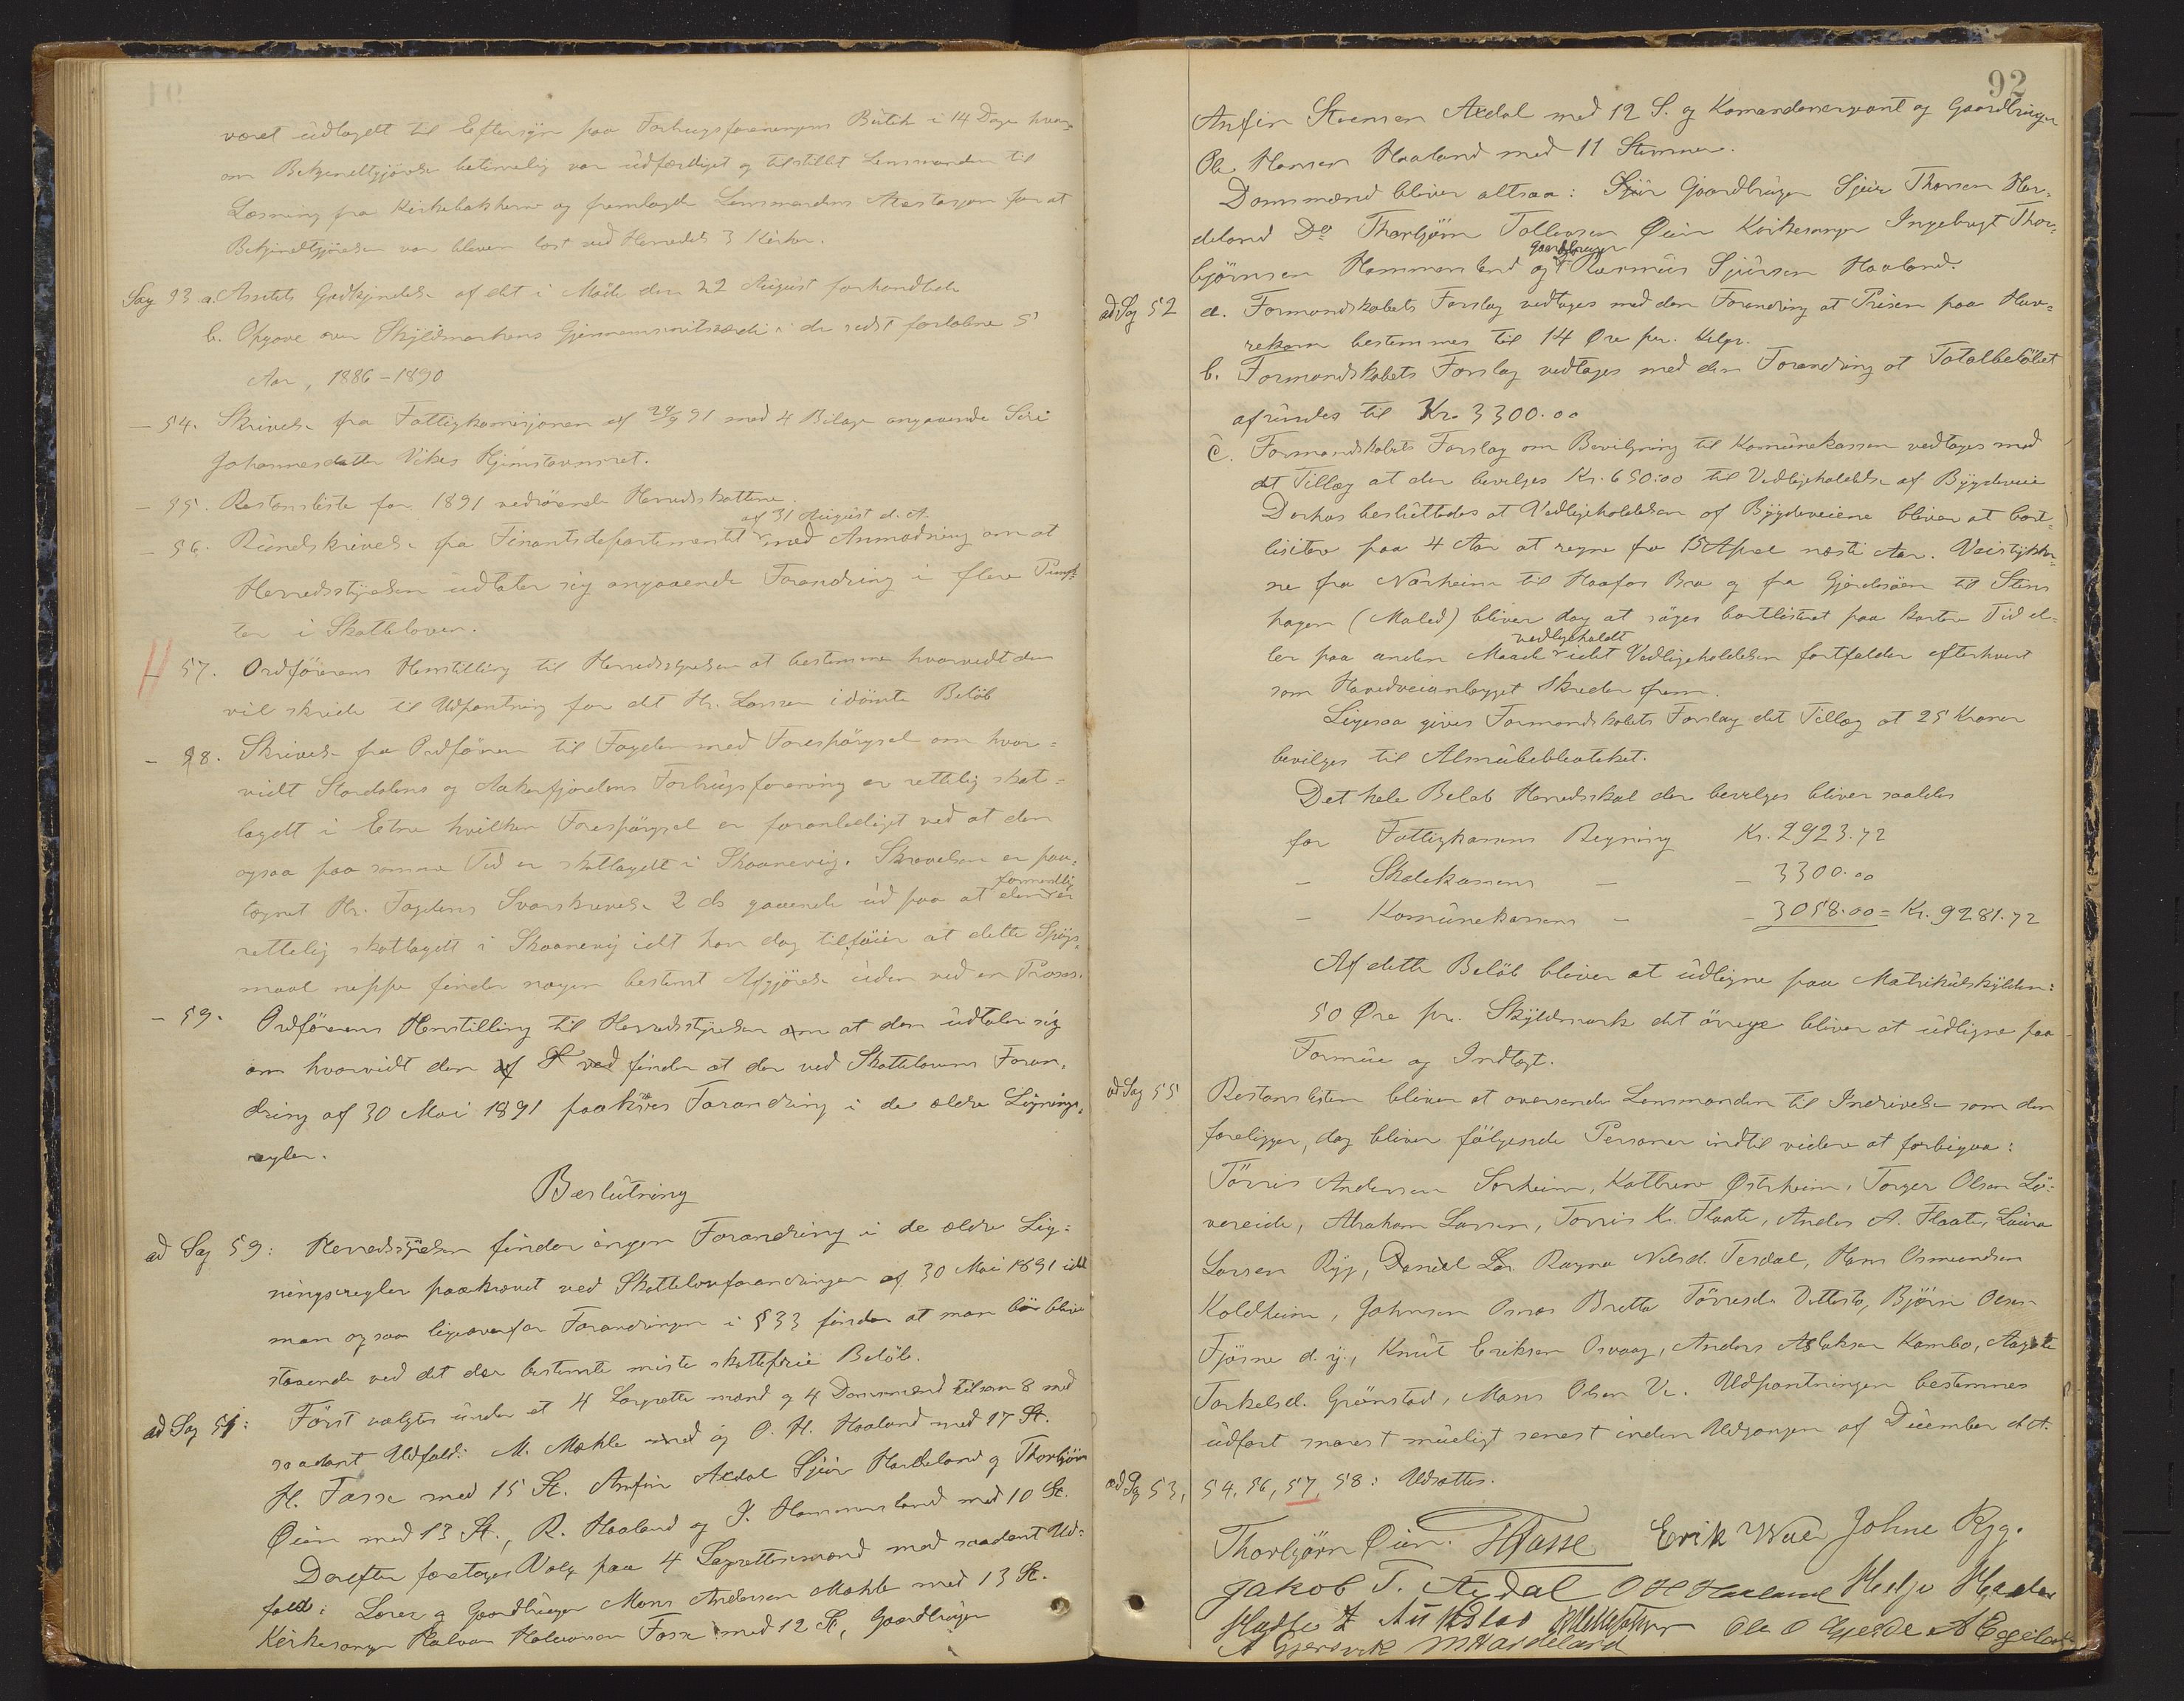 været udlagdt til Eftersyn paa Forbrugsforeningens Butik i 14 Dage hvor
om Bekjendtgjørelse betimelig var udfærdiget og tilstillet Lensmanden til
Læsning fra Kirkebakkerne og fremlagde Lensmandens Atestasjon for at
Bekjendtgjørelsen var bleven læst ved Herredets 3 Kirker.
Sag 53 a. Amtets Godkjendelse af det i Møde den 22 August forhandlede
b. Opgave over Skyldmarkens Gjennemsnitsværdi i de sidst forløbne 5
Aar, 1886-1890
- 54. Skrivelse fra Fattigkomisjonen af 29/9 91 med 4 Bilage angaaende Siri
Johannesdatter Vikes Hjemstavnsret.
- 55. Restanseliste for 1891 vedrørende Herredsskatterne.
- 56. Rundskrivelse fra Finantsdepartementet af 31 August d. A. med Anmodning om at
Herredsstyrelsen udtaler sig angaaende Forandring i flere Punk-
ter i Skatteloven.
57. Ordførerens Henstilling til Herredsstyrelsen at bestemme hvorvidt den
vil skride til Udpantning for det Hr. Larsen idømte Beløb
- 58. Skrivelse fra Ordføreren til Fogden med Forespørgsel om hvor=
vidt Stordalens og Aakrefjordens Forbrugsforening er rettelig skat=
lagdt i Etne hvilken Forespørgsel er foranlediget ved at den
ogsaa paa samme Tid er skatlagdt i Skaanevig. Skrivelsen er paa=
tegnet Hr. Fogdens Svarskrivelse 2 ds gaaende ud paa at den formentlig er
rettelig skatlagdt i Skaanevig idet han dog tilføier at dette Spørgs=
maal neppe finder nogen bestemt Afgjørelse uden ved en Proses.
- 59. Ordførerens Henstilling til Herredsstyrelsen om at den udtaler sig
om hvorvidt den finder at der ved Skattelovens Foran=
dring af 30 Mai 1891 paakræves Forandring i de ældre Lignings=
regler.
Beslutning
ad Sag 59: Herredsstyrelsen finder ingen Forandring i de ældre Lig=
ningsregler paakrævet ved Skattelovforandringen af 30 Mai 1891 idet
man ogsaa ligeoverfor Forandringen i § 33 finder at man bør blive
staaende ved det der bestemte miste skattefrie Beløb.
ad Sag 51: Først valgtes under et 4 Lagrette mænd og 4 Domsmænd tilsam 8 med
saadant Udfald: M. Mæhle og O. H. Haaland med 17 St.
H. Fosse med 15 St. Anfin Axdal Sjur Hardeland og Thorbjørn
Øien med 13 St., R. Haaland og I. Hammersland med 10 St.
Derefter foretages Valg paa 4 Lagrettesmænd med saadant Ud=
fald: Lærer og Gaardbruger Mons Andersen Mæhle med 13 St.
Kirkesanger Halvor Halvorsen Fosse med 12 St, Gaardbruger
92
Anfin Steensen Axdal med 12 S. og Komandersergant og Gaardbruger
Ole Hansen Haaland med 11 Stemmer.
Domsmænd bliver altsaa: Gaardbruger Sjur Thorsen Har=
deland Do Thorbjørn Tollevsen Øien Kirkesanger Ingebrigt Thor=
bjørnsen Hammersland og Gaardbruger Rasmus Sjursen Haaland.
ad Sag 52 a. Formandskabets Forslag vedtages med den Forandring at Prisen paa Hav=
rekorn bestemmes til 14 Øre per. Kilgr.
b. Formandskabets Forslag vedtages med den Forandring at Totalbeløbet
afrundes til Kr. 3300.00
c. Formandskabets Forslag om Bevilgning til Komunekassen vedtages med
det Tillæg at der bevilges Kr. 650:00 til Vedligeholdelse af Bygdeveie
Derhos besluttedes at Vedligeholdelsen af Bygdeveiene bliver at bort=
lisitere paa 4 Aar at regne fra 15 April næste Aar. Veistykker=
ne fra Nærheim til Haafos Bro og fra Gjerdesøen til Stens
hagen (Maled) bliver dog at søges bortlisteret paa kortere Tid el=
ler paa anden Maade vedligeholdt idet Vedligeholdelsen fortfalder efterhvert
som Hovedveianlægget skreder frem.
Ligesaa gives Formandskabets Forslag det Tillæg at 25 Kroner
bevilges til Almuebiblioteket.
Det hele Beløb Herredsskat der bevilges bliver saaledes
for Fattigkassens Regning Kr. 2923.72
- Skolekassens - - 3300.00
- Komunekassens - - 3058.00 = Kr. 9281.72
Af dette Beløb bliver at udligne paa Matrikulskylden:
50 Øre pr. Skyldmark det øvrige bliver at udligne paa
Formue og Indtægt.
ad Sag 55 Restanslisten bliver at oversende Lensmanden til Indrivelse som den
foreligger, dog bliver følgende Personer indtil videre at forbigaa:
Tørris Andersen Sørheim, Kathrine Østrheim, Torger Olsen Lø=
vereide, Abraham Larsen, Tørris K. Flaate, Anders A. Flaate, Laura
Larsen Ryg, Ragna Nilsd. Tesdal, Hans Osmundsen
Koldheim, Johnsen Osnes Brette Tørresdr. Vettestø, Bjørn Olsen
Fjøsne d. y., Knut Eriksen Osvaag, Anders Aslaksen Kambo, Aagote
Torkelsd. Grønstad, Mons Olsen Vi. Udpantningen bestemmes
udført snarest muligt senest inden Udgangen af December d. A.
ad Sag 53, 54, 56, 57, 58: Udsættes.
Thorbjørn Øien. HFosse Erik Wiie Johne Ryg.
Jakob T. Axdal O H Haaland Helje
Ole O Gjerde A Egeland
A Gjersvik MHardeland